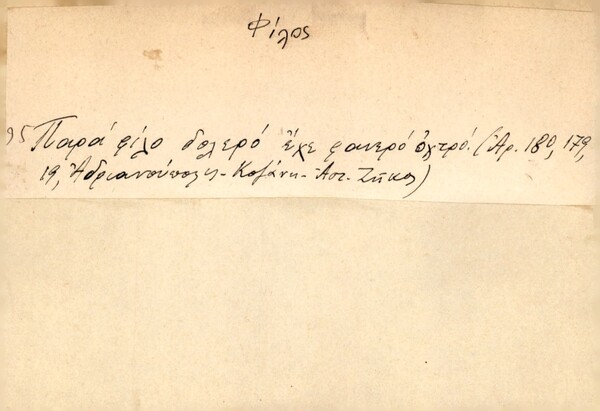 Φίλος
95 Παρά φίλο δολερό ἔχε φανερό ὀχτρό. (Ἀρ. 180, 179,
19, Ἀδριανούπολη - Κοζάνη - Ἀστ. Ζήκος)